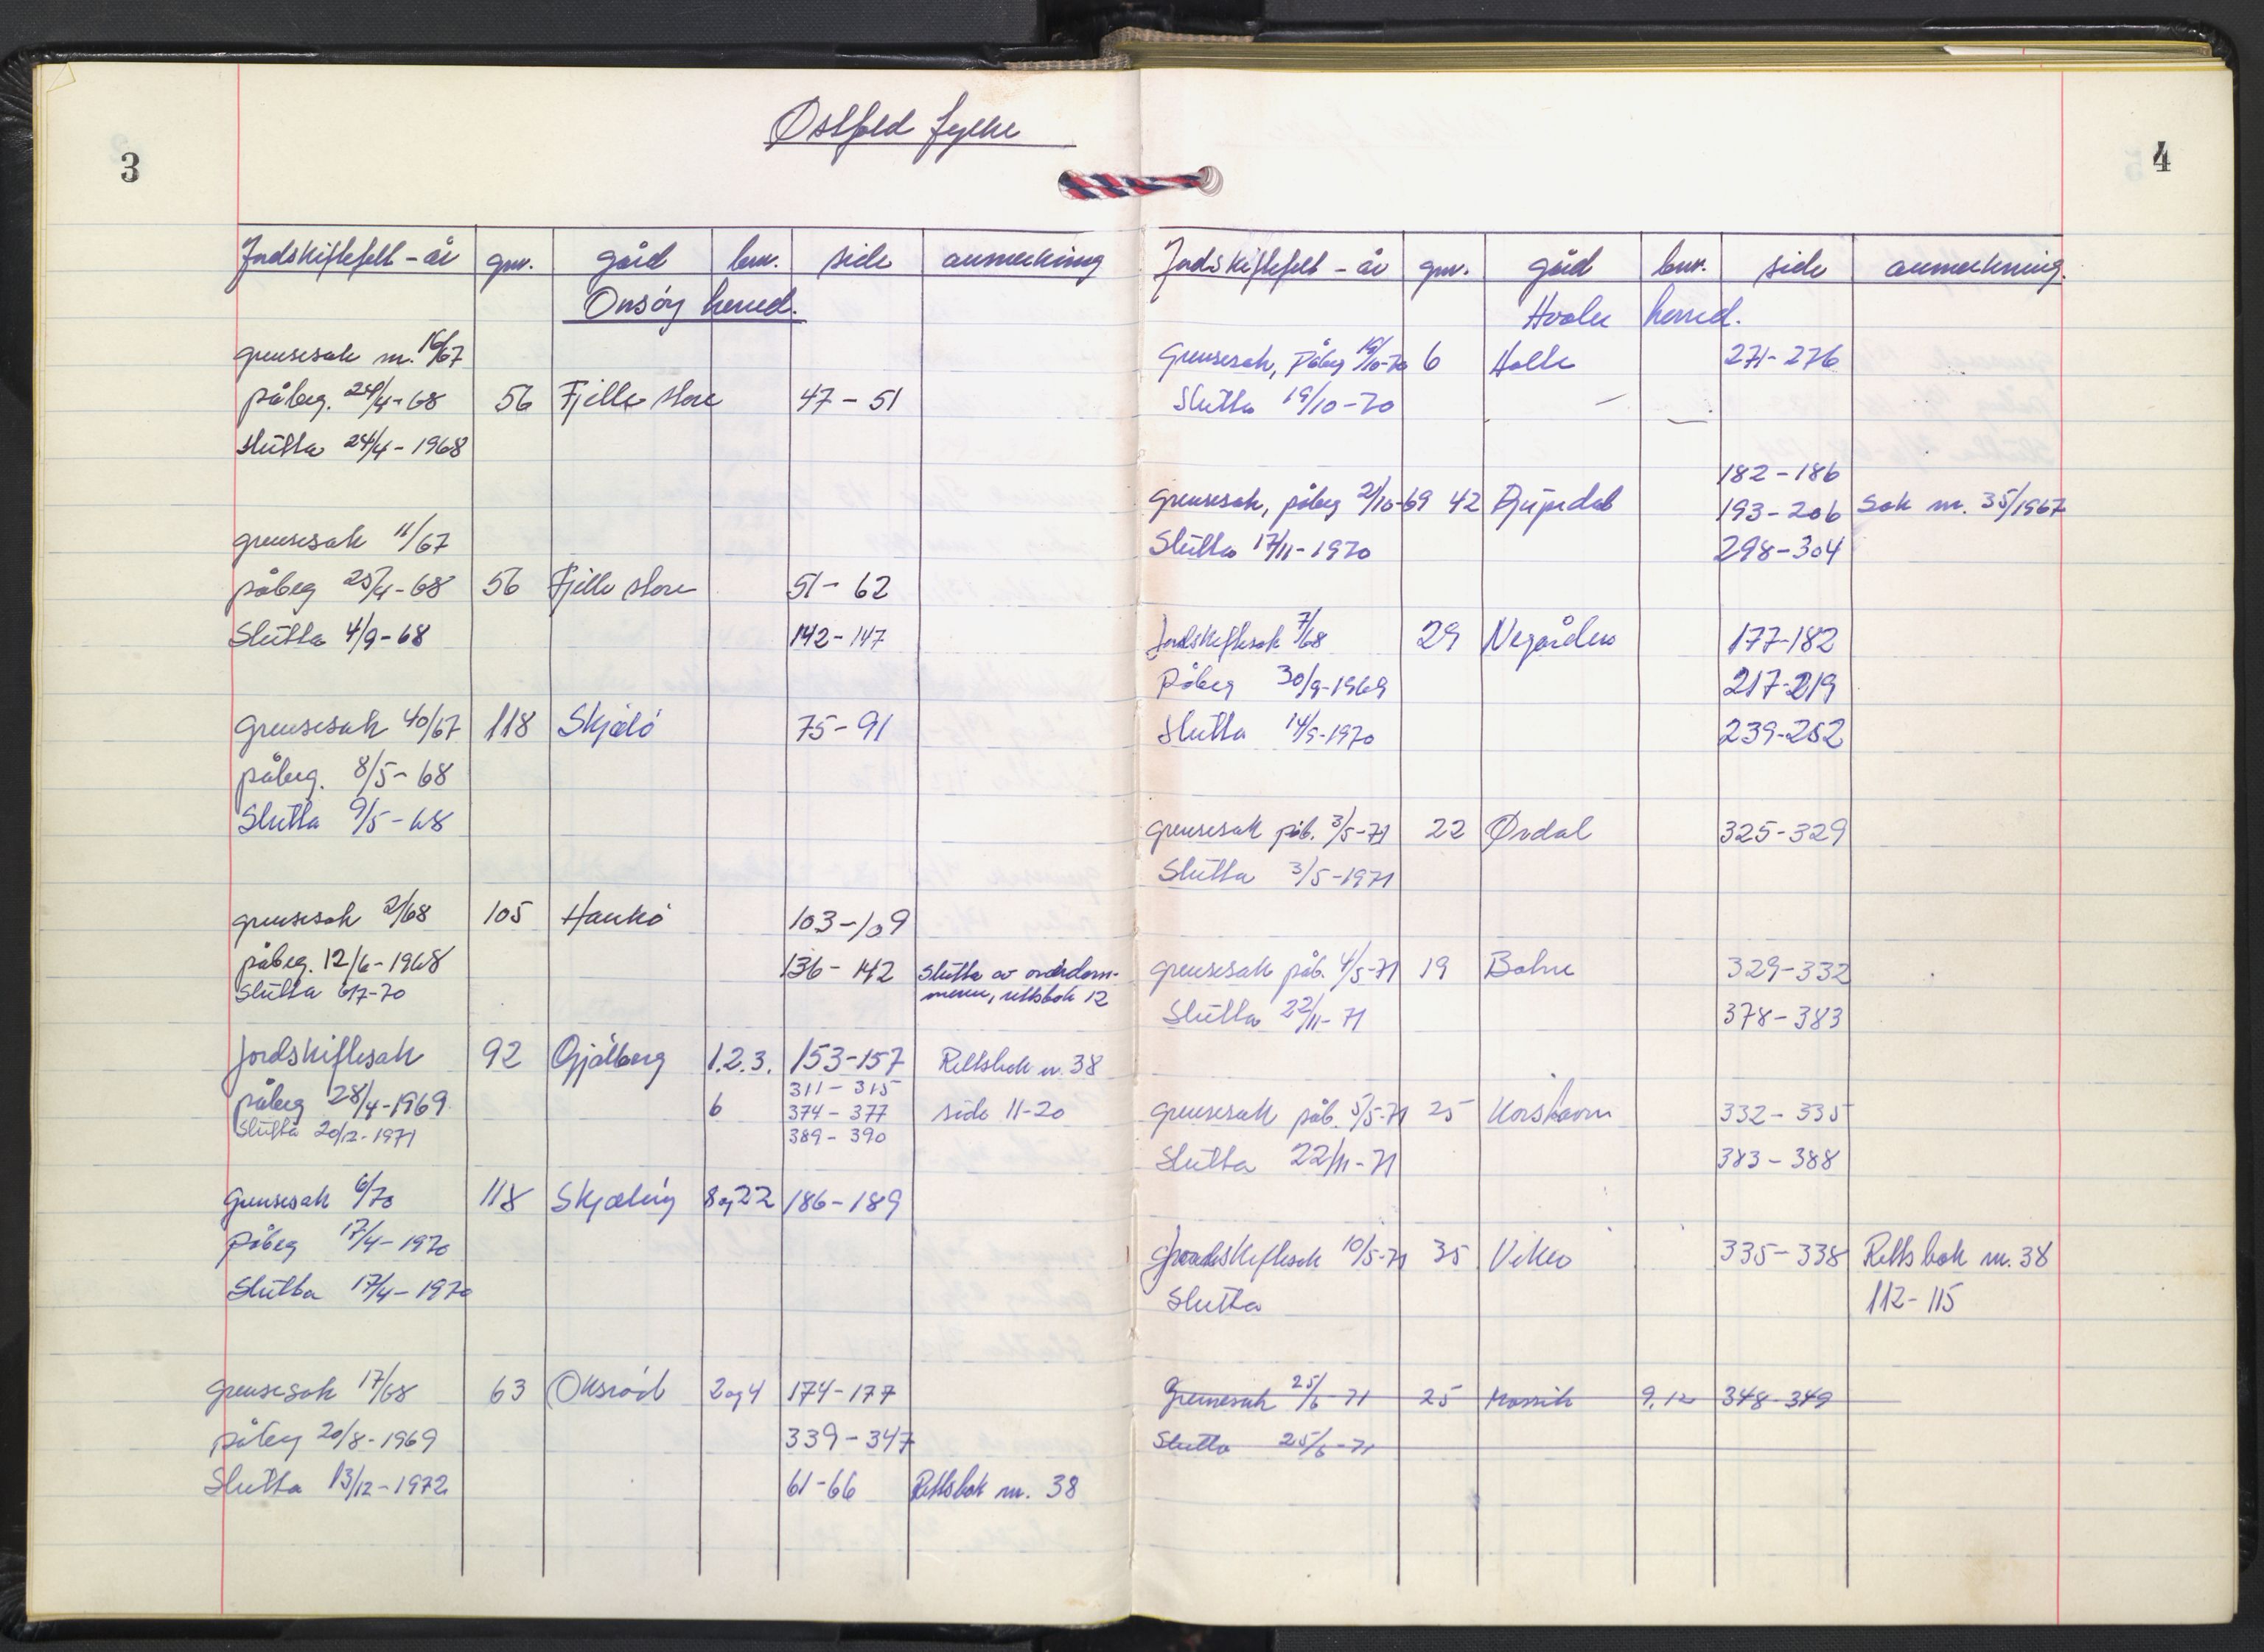 Østfold fylke
3
Jordskiftefelt - år gnr. gård bnr. side anmerkning
Onsøy herred.
grensesak nr. 16/67
påbeg. 24/4-68 56 Fjelle store 47-51
slutta 24/4-1968
grensesak 11/67
påbeg 25/4-68 56 Fjelle store 51-62
Slutta 4/9-68 142-147
Grensesak 40/67 118 Skjælø 75-91
påbeg. 8/5-68
Slutta 9/5-68
grensesak 2/68 105 Hankø 103-109
påbeg. 12/6-1968 136-142 Slutta av
Slutta 6/7-70 rettsbok 12
Jordskiftesak 92 Gjølberg 1.2.3. 153-157 Rettsbok nr. 38
311-315
påbeg 28/4-1969 6 374-377 side 11-20
Slutta 20/12-1971 389-390
Grensesak 6/70 118 Skjæløy 8 og 22 186-189
påbeg 17/4-1970
Slutta 17/4-1970
grensesak 17/68 63 Oksrød 2 og 4 174-177
påbeg 20/8-1969 339-347
Slutta 13/12-1972 61-66 Rettsbok nr. 38
4
Jordskiftefelt - år gnr. gård bnr. side anmerkning.
Hvaler herred.
Grensesak, påbeg 19/10-70 6 Holte 271-276
Slutta 19/10-70
182-186
Grensesak, påbeg 2/10-69 42 Djupedal 193-206 Sak nr. 35/1967
Slutta 17/11-1970 298-304
Jordskiftesak 7/68 29 Negården 177-182
Påbeg 30/9-1969 217-219
Slutta 14/9-1970 239-252
grensesak påb. 3/5-71 22 Ørdal 325-329
Slutta 3/5-1971
grensesak påb. 4/5-71 19 Bølne 329-332
Slutta 22/11-71 378-383
grensesak påb. 5/5-71 25 Korshavn 332-335
Slutta 22/11-71 383-388
Jordskiftesak 10/5-71 35 Viker 335-338 Rettsbok nr. 38
Slutta 112-115
Grensesak 25/6-71 25 9,12 348-349
Slutta 25/6-71